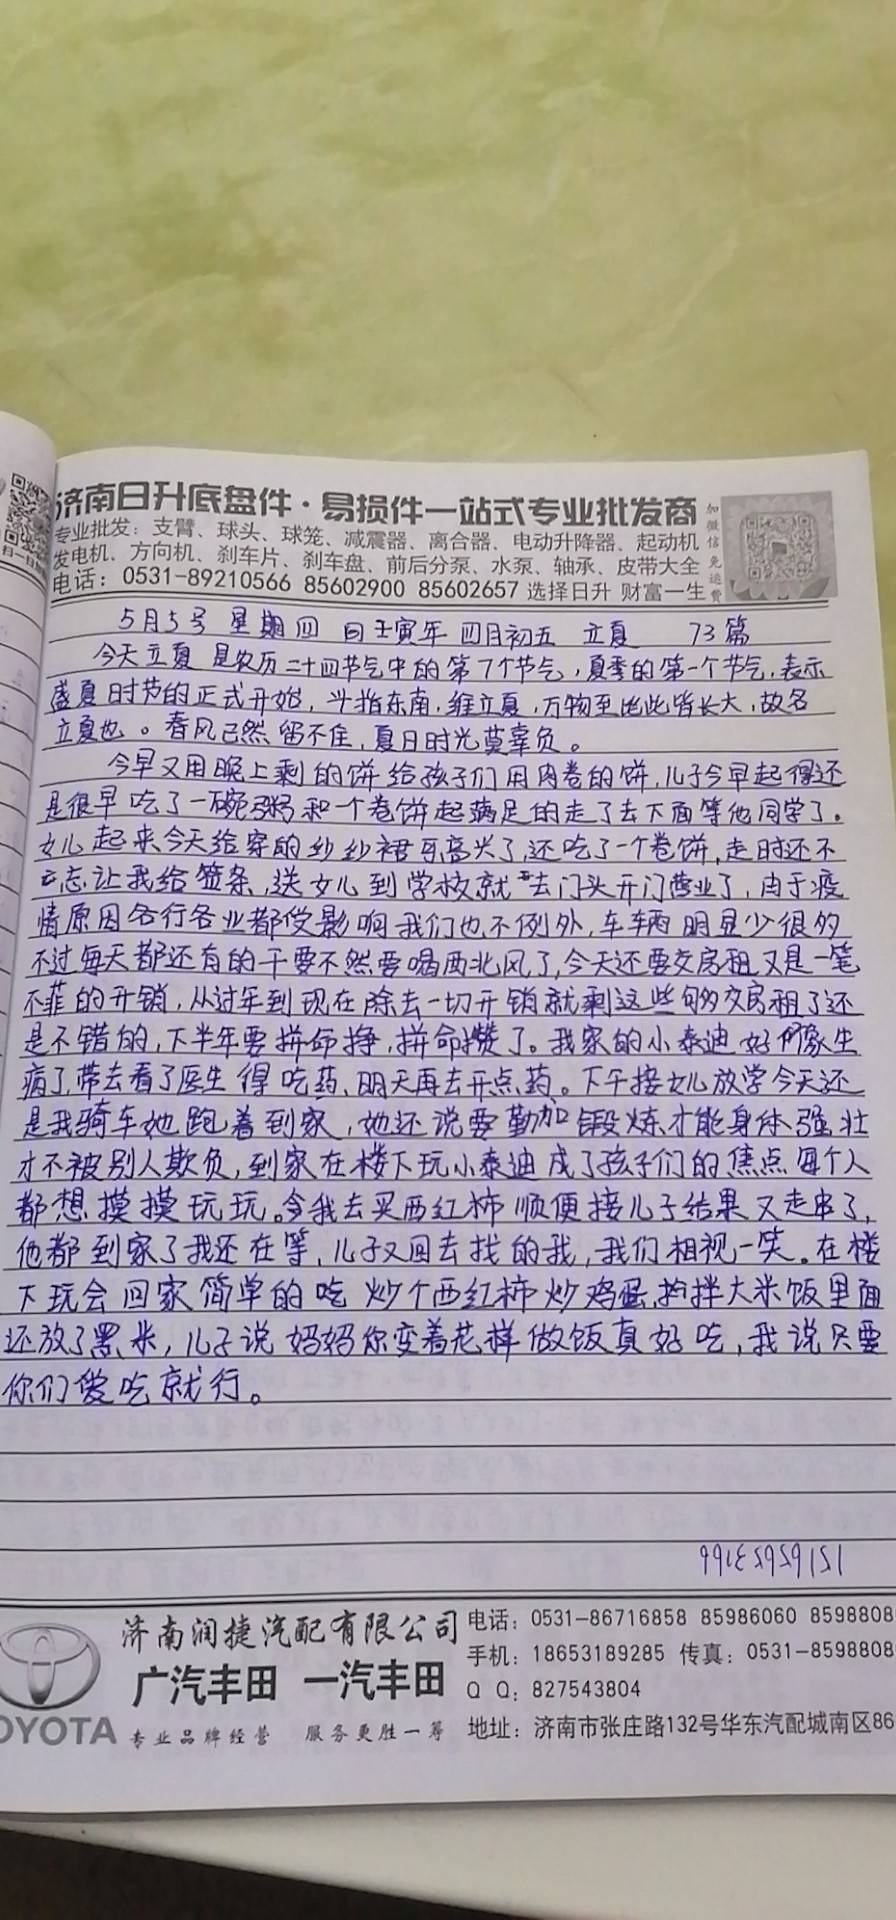 济南日升底盘件·易损件一站式专业批发商
加微信 免运费
专业批发：支臂、球头、球笼、减震器、离合器、电动升降器、起动机
发电机、方向机、刹车片、刹车盘、前后分泵、水泵、轴承、皮带大全
电话：0531-89210566 85602900 85602657 选择日升 财富一生
5月5号 星期四 曰壬寅年 四月初五 立夏 73篇
今天立夏是农历二十四节气中的第7个节气，夏季的第一个节气，表示
盛夏时节的正式开始，斗指东南，维立夏，万物至此皆长大，故名
立夏也。春风已然留不住，夏日时光莫辜负。
今早又用晚上剩的饼给孩子们用肉卷的饼，儿子今早起得还
是很早吃了一碗粥和一个卷饼起满足的走了去下面等他同学了。
女儿起来今天给穿的纱纱裙可高兴了，还吃了一个卷饼，走时还不
忘让我给签条，送女儿到学校就去门头开门营业了，由于疫
情原因各行各业都受影响我们也不例外，车辆明显少很多
不过每天都还有的干要不然要喝西北风了，今天还要交房租又是一笔
不菲的开销，从过年到现在除去一切开销就剩这些够交房租了还
是不错的，下半年要拼命挣，拼命攒了。我家的小泰迪好像生
病了，带去看了医生得吃药、明天再去开点药。下午接女儿放学今天还
是我骑车她跑着到家，她还说要勤加锻炼才能身体强壮
才不被别人欺负，到家在楼下玩小泰迪成了孩子们的焦点每个人
都想摸摸玩玩。令我去买西红柿顺便接儿子结果又走串了，
他都到家了我还在等，儿子又回去找的我，我们相视一笑。在楼
下玩会回家简单的吃炒个西红柿炒鸡蛋，拌大米饭里面
还放了黑米，儿子说妈妈你变着花样做饭真好吃，我说只要
你们爱吃就行。
15165653166
济南润捷汽配有限公司
广汽丰田 一汽丰田
OYOTA 专业品牌经营 服务更胜一筹
电话：0531-86716858 85986060 8598808
手机：18653189285 传真：0531-8598808
Q Q：827543804
地址：济南市张庄路132号华东汽配城南区86